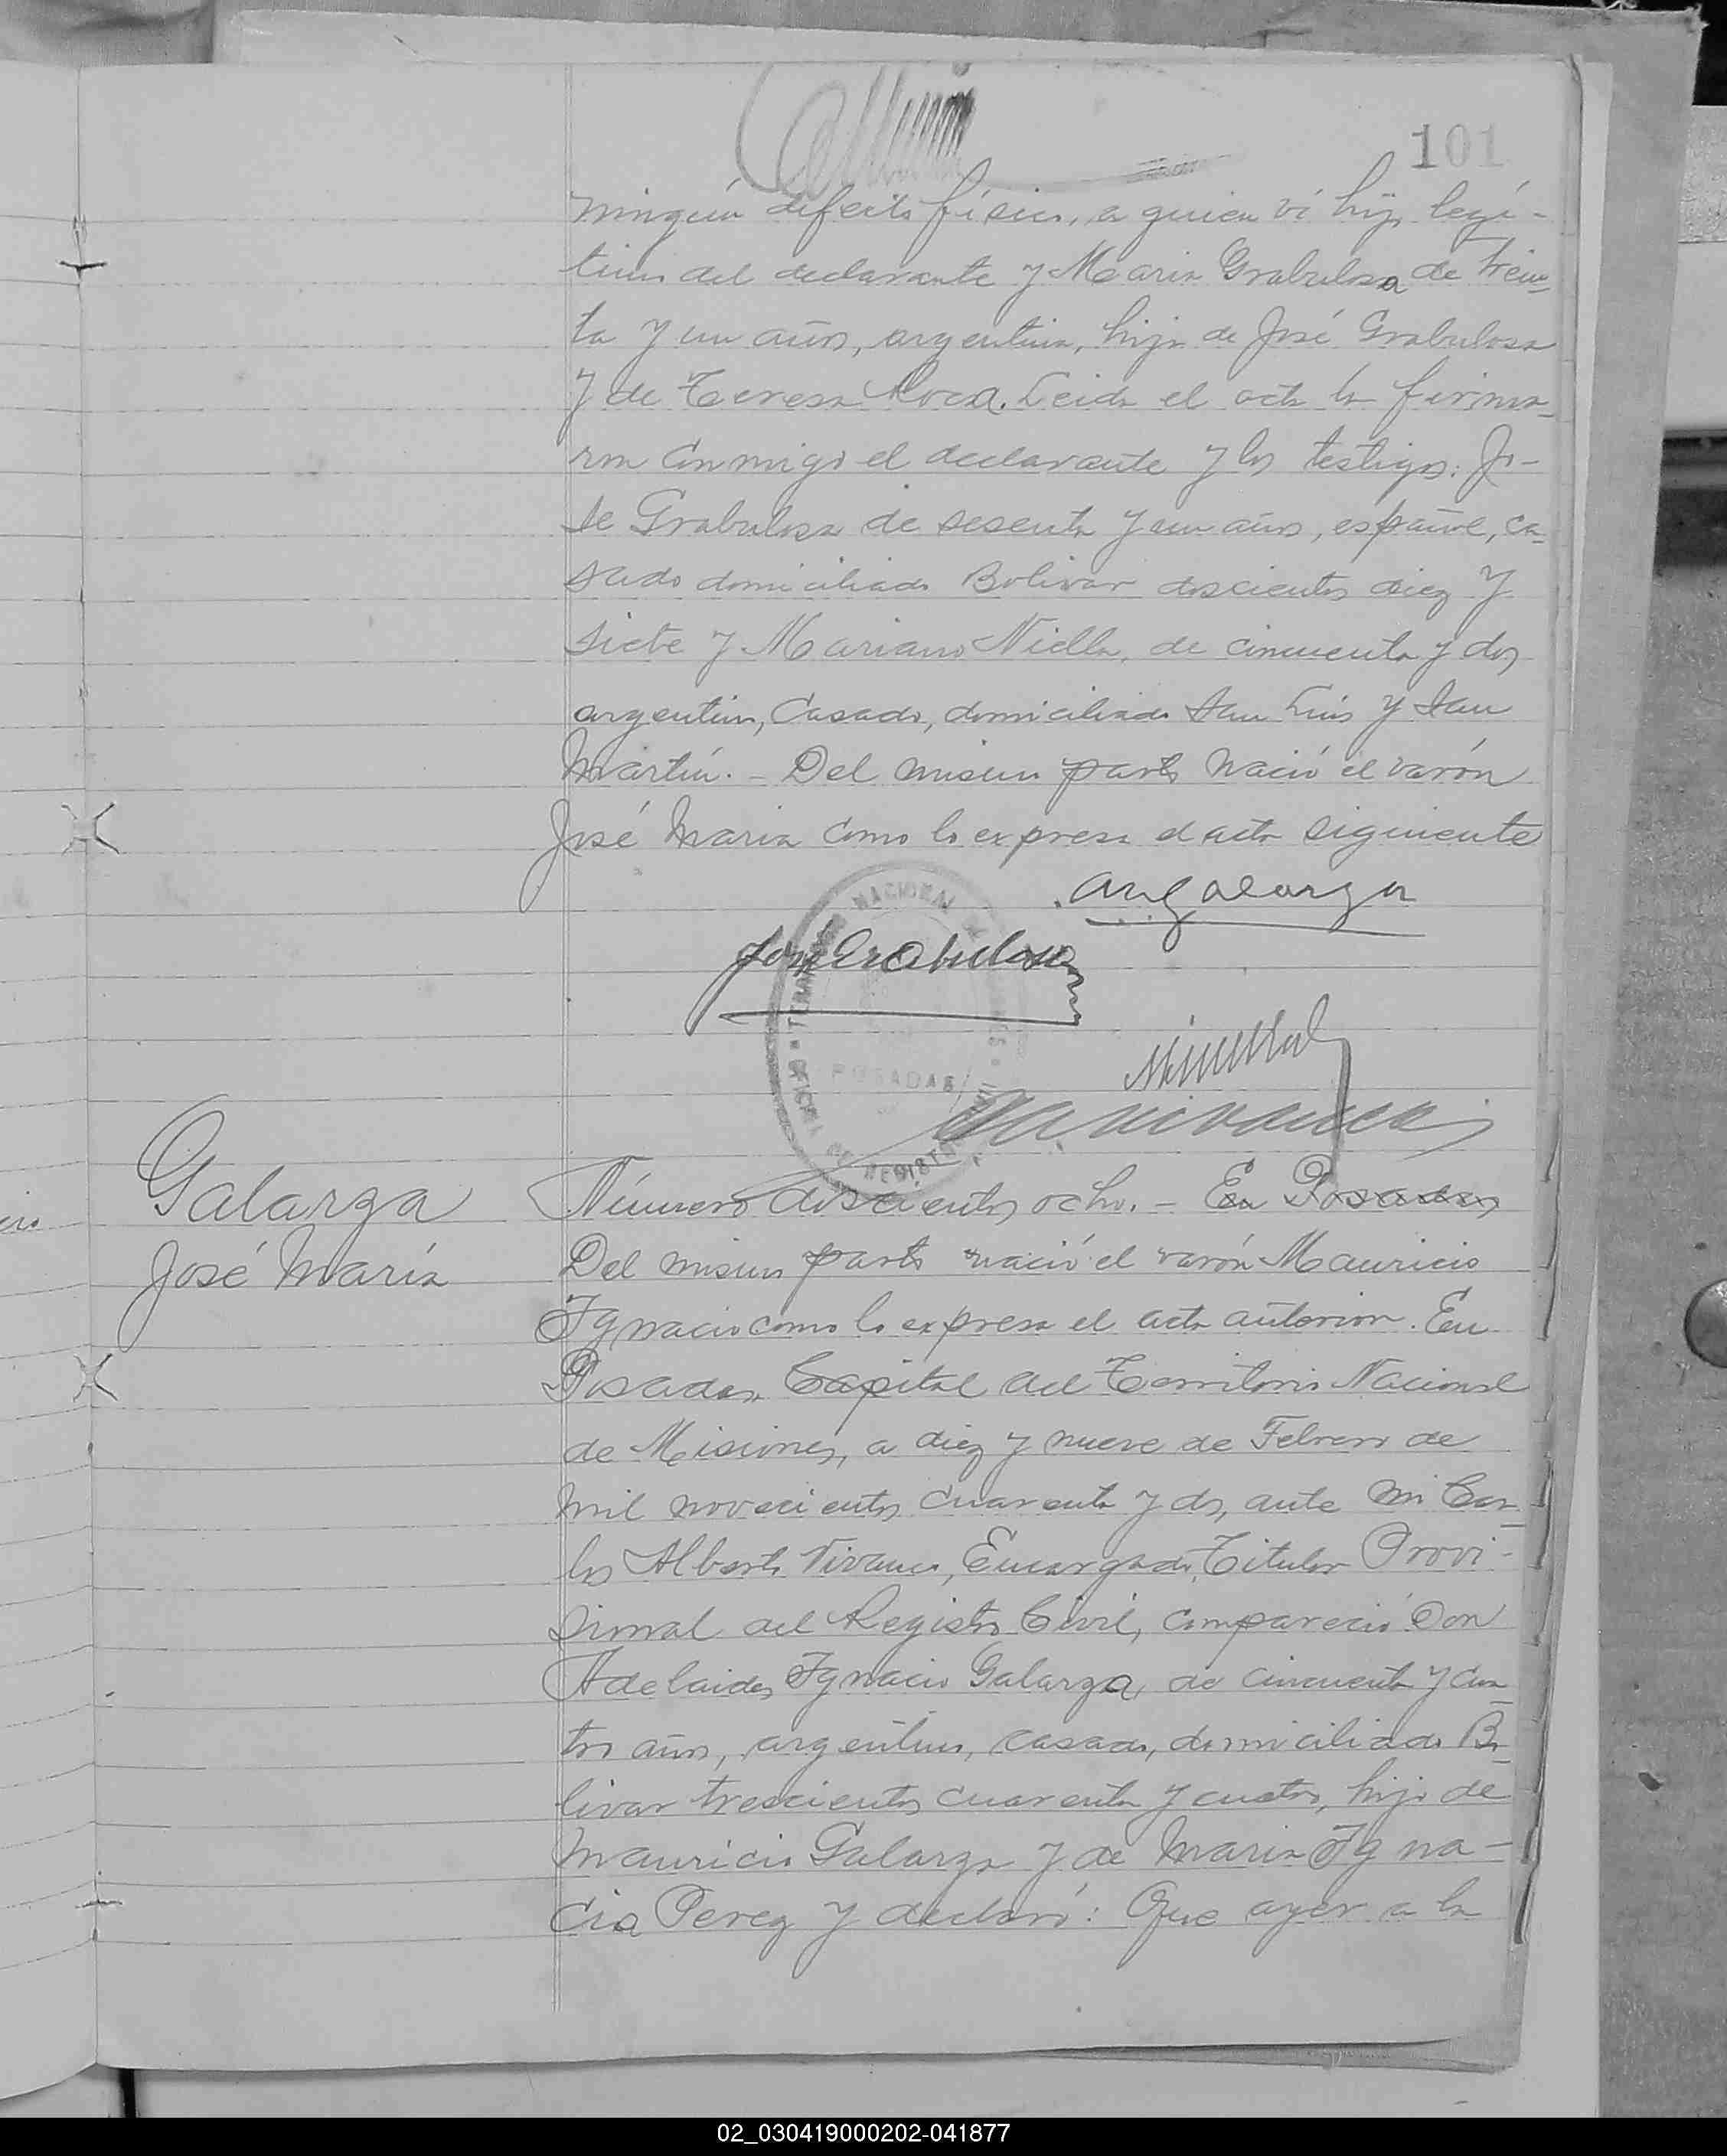 101
ningún defecto físico, a quien ví hijo legí-
timo del declarante y Maria Grabulosa de trein-
ta y un años, argentina, hija de José Grabulosa
y de Teresa Roca. Leida el acta la firma-
ron conmigo el declarante y los testigos: Jo-
se Grabulosa de sesenta y un años, español, ca-
sado domiciliado Bolivar doscientos diez y
siete y Mariano Niella, de cincuenta y dos
argentino, casado, domiciliado San Luis y San
Martín. - Del mismo parto nació el varón
José Maria como lo expresa el acta siguiente
José Grabulosa
POSADAS
Galarza
José María
Número doscientos ocho. - En Posadas
Del mismo parto nació el varón Mauricio
Ignacio como lo expresa el acta anterior. En
Posadas, Capital del Territorio Nacional
de Misiones, a diez y nueve de Febrero de
mil novecientos cuarenta y dos, ante mi Car-
los Alberto Vivanco, Encargado Titular Provi-
sional del Registro Civil, compareció Don
Adelaides Ignacio Galarza, de cincuenta y cua-
tro años, argentino, casado, domiciliado Bo-
livar trescientos cuarenta y cuatro, hijo de
Mauricio Galarza y de Maria Igna-
cia Perez y declaró: Que ayer a la
02_030419000202-041877